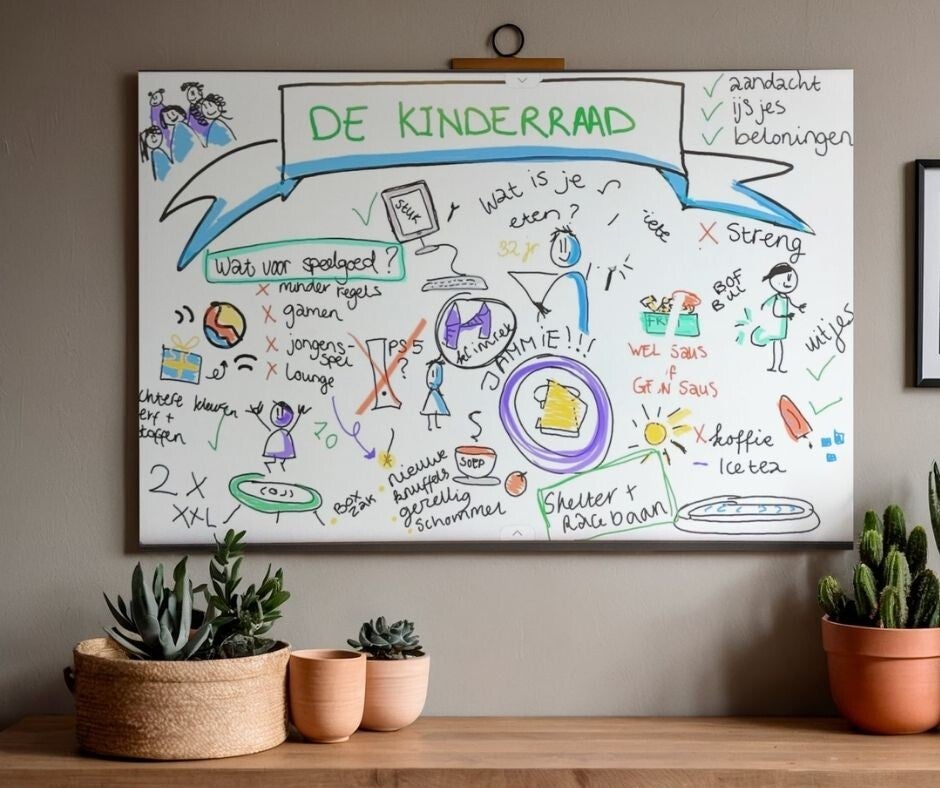 DE KINDERRAAD
aandacht
ijsjes
beloningen
Stuk
Wat is je
eten?
iete
32 jr
Streng
Wat voor speelgoed?
minder regels
gamen
jongens-
spel
lounge
PS5
?
JAMMIE!!!
BOF
BUL
FR
WEL SAUS
GEEN SAUS
uitjes
kleuren
erf +
stoffen
10
2x
XXL
BOX
ZAK
nieuwe
knuffels
gezellig
schommel
SOEP
koffie
Icetea
Shelter +
Racebaan